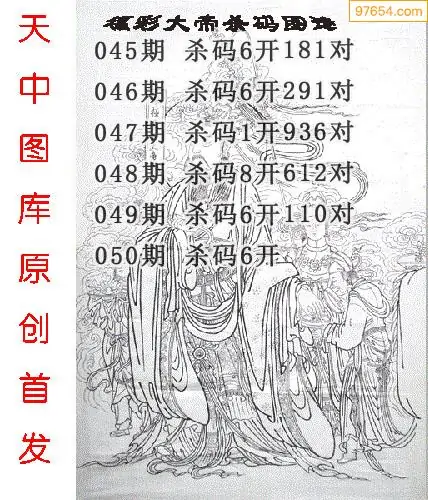 97654.com
福彩大帝杀码图谜
045期 杀码6开181对
046期 杀码6开291对
047期 杀码1开936对
048期 杀码8开612对
049期 杀码6开110对
050期 杀码6开
天中图库原创首发